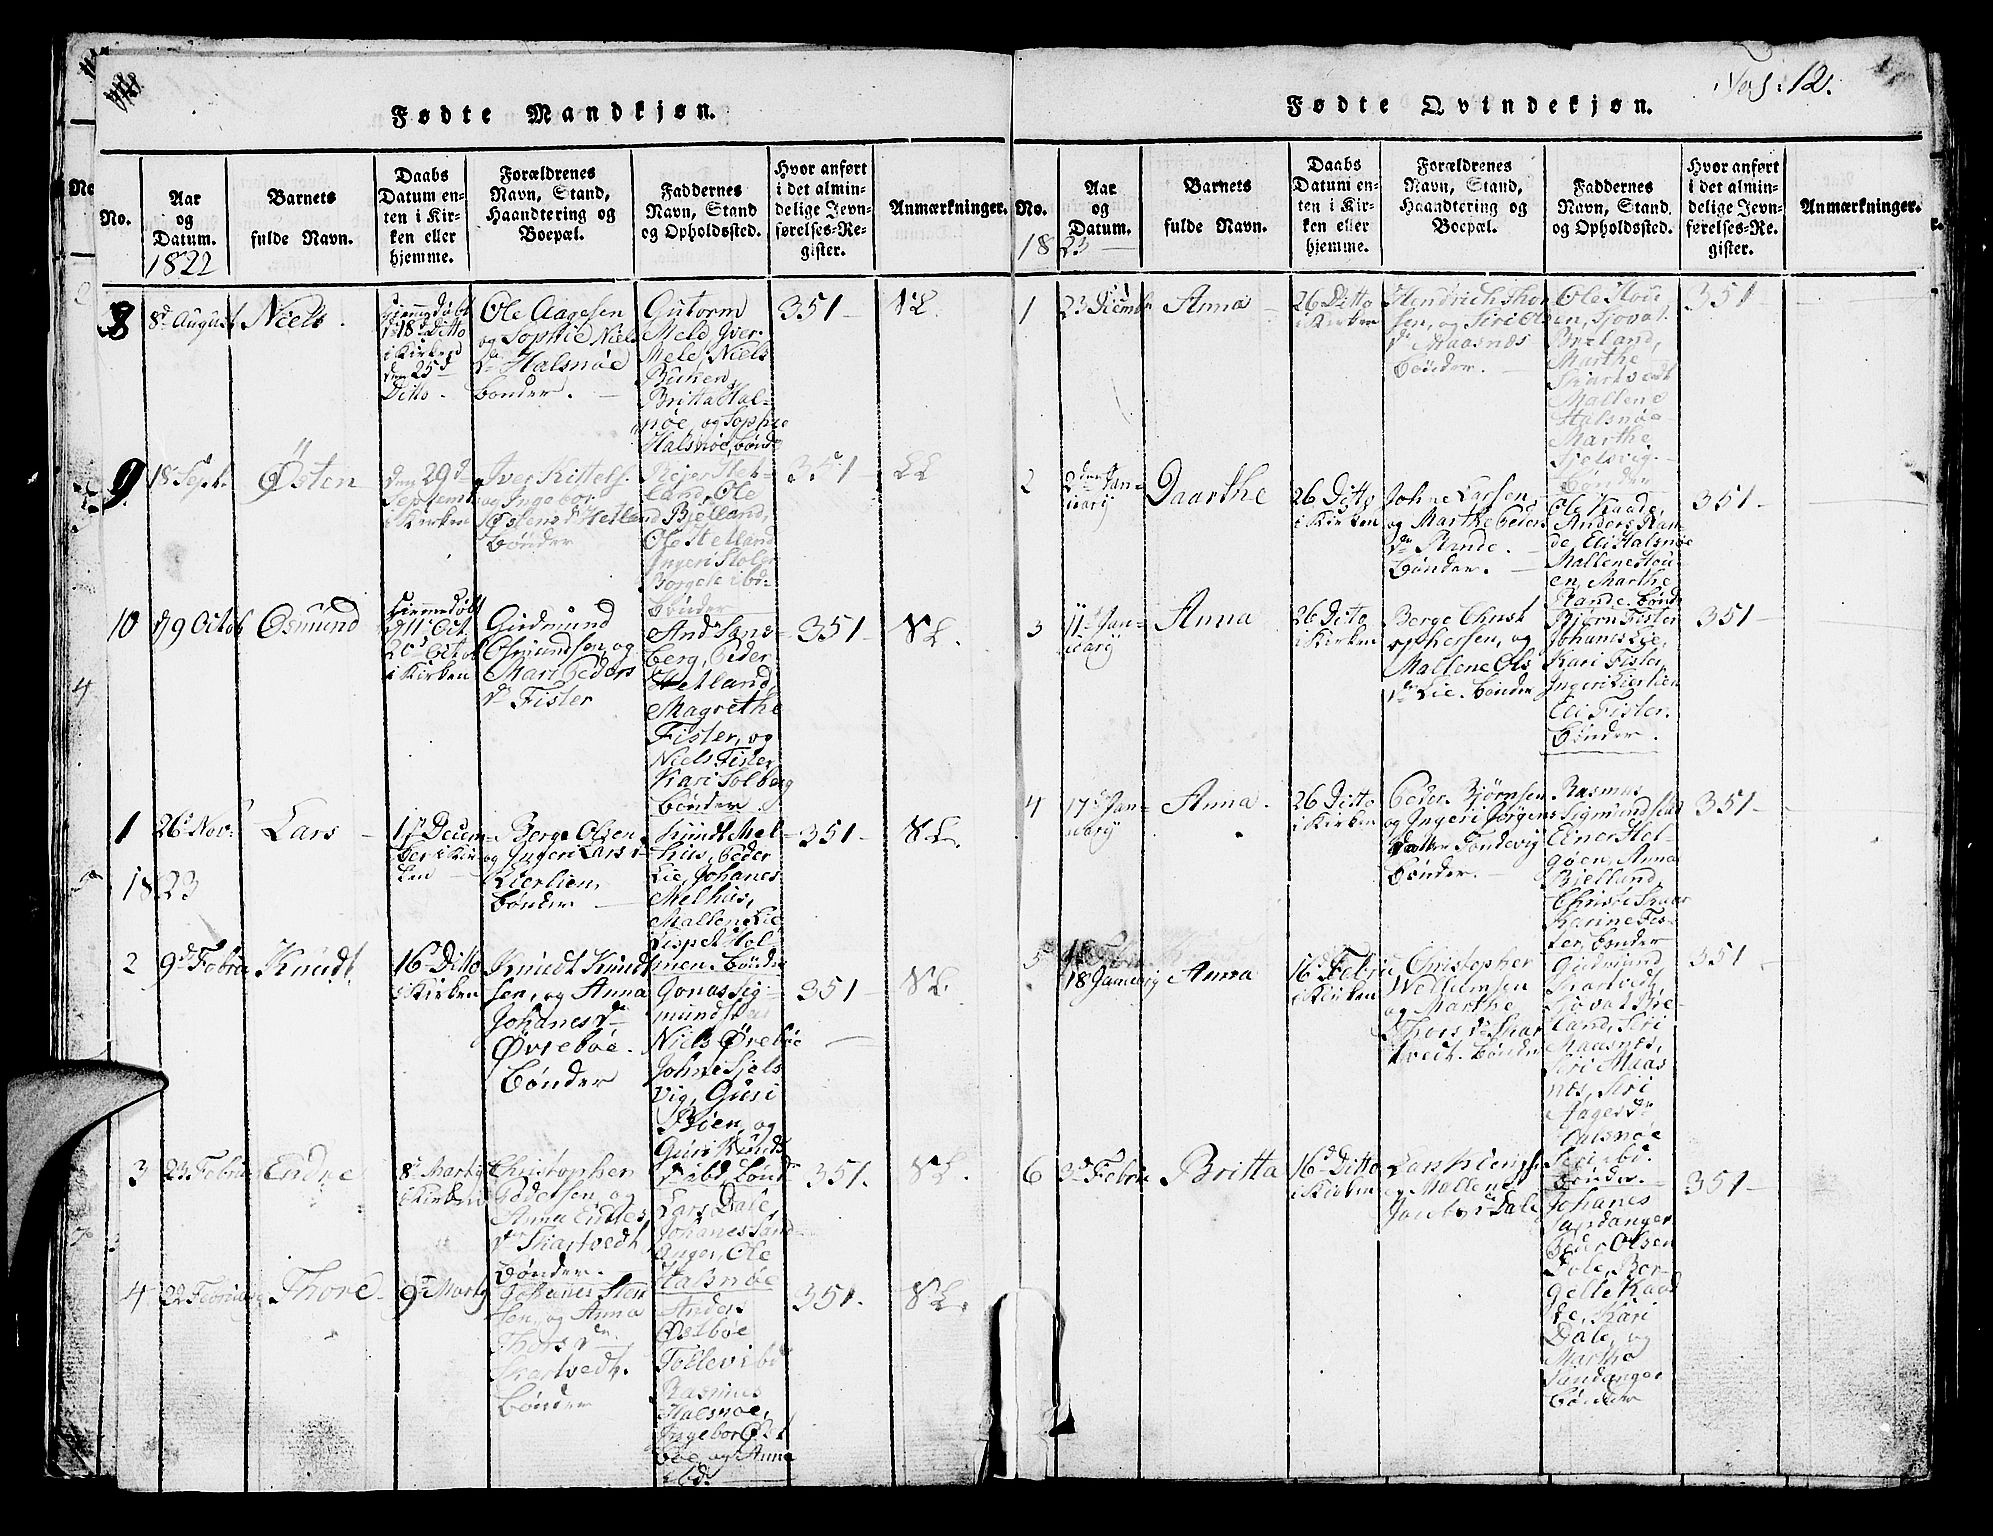 Fødte Mandkjøn.
No.
Aar
og
Datum.
1822
Barnets
fulde Navn.
Daabs
Datum en-
ten i Kir-
ken eller
hjemme.
Forældrenes
Navn, Stand,
Haandtering og
Boepæl.
Faddernes
Navn, Stand
og Opholdssted.
Hvor anført
i det almin-
delige Jevn-
førelses-Re-
gister.
Anmærkninger.
8
8d August
Niels
hjemmedøbt
d 18d Ditto
i Kirken
den 25d
Ditto.
Ole Aagesen
og Sophie Niels
Dr Halsnøe
bønder.
Gutorm
Meld, Iver
Meld, Niels
Buken,
Britta Hal-
nøe, og Sophie
Halsnøe, bønd
351
9
18 Sept.
Østen
den 29d
Septembr
i Kirken
Iver Kittels
og Ingebor
Østens Dr Hetland
bønder
Rejer Het-
land, Ole
Bjelland,
Ole Hetland
Ingeri Stoler
Borgele ibd
bønder
351
10
d 9 Octob
Osmund
hjemmedøbt
d 11t Oct
20d Octob
i Kirken
Gudmund
Osmundsen, og
Mari Peders
Dr Fister
Ands Sans-
berg, Peder
Hetland,
Magrethe
Fister, og
Niels Fister
Kari Solberg
bønder
351
1
26d Novr
Lars
17 Decem-
ber i Kir-
ken
Berge Olsen
og Ingeri Lars
Lierlien,
bønder
Knudt Mel-
hus, Peder
Lie, Johanes
Melhus,
Mallene Lie
Lispet Hol-
men. bønder
351
1823
2
9d Febru
Knudt
16 Ditto
i Kirken
Knudt Knudt
sen, og Anna
Johanes Dr
Øvrebøe.
bønder
Gonas Sig-
mundstad
Niels Ørebøe
Johne Sjøls
vig, Guri
Bøen, og
Guri Knuds
Dr ibd. bønd
351
3
23 Febru
Endre
8d Marty
i Kirken
Christopher
Pedersen, og
Anna Endres
Dr Thartvedt
bønder.
Lars Dale,
Johanes Sand-
anger, Ole
Halsnøe
351.
4
22 Februarij
Thore
9d Marty
Johanes Sten
sen, og Anna
Thors Dr
Thartvedt.
bønder
Anders
Østbøe
Tollev ibd
Rasmus
Halsnøe,
Ingebor Øst
bøe, og Anna
ibd.
351.
Fødte Qvindekjøn.
12.
No.
Aar
og
Datum.
1823
Barnets
fulde Navn.
Daabs
Datum en-
ten i Kir-
ken eller
hjemme.
Forældrenes
Navn, Stand,
Haandtering og
Boepæl.
Faddernes
Navn, Stand.
og Opholdssted.
Hvor anført
i det almin-
delige Jevn-
førelses-Re-
gister.
Anmærkninger.
1
23 Decembr
Anna
26 Ditto
i Kirken
Hendrich Thor
sen, og Siri Olsen,
Dr Maasnæs
bønder.
Ole Houe
Sjovat
Bieland,
Marthe
Thartvedt
Mallene
Halsnøe
Marthe
Sjølsvig.
bønder
351
2
2den Jan-
uarij
Daarthe
26 Ditto
i Kirken
Johne Larsen
og Marthe Peders
Dr Rande.
bønder.
Ole Kaade,
Anders Ran-
de, Eli Halsnøe
Mallene Hou-
en, Marthe
Rande. bønd
351
3
11d Jan-
uarij
Anna
26 Ditto
i Kirken
Berge Christ
ophersen, og
Mallene Ols
Dr Lie. bønder
Bjørn Fister
Johanes Lie,
Kari Fister,
Ingeri Lierlien
Eli Fister.
bønder.
351
4
17d Jan-
uarij
Anna.
26 Ditto
i Kirken
Peder Bjørnsen
og Ingeri Jørgens
datter Tondevig
bønder.
Rasmus
Sigmundstad
Einer Hel-
gøen, Anna
Bjelland,
Christi
Karine Fis-
ter, bønder
351
5
18 Januarij
Anna
16d Febru
i Kirken
Christopher
Wellumsen
og Marthe
Thors Dr Thar
tvedt. bønder
Gudmund
Thartvedt,
Sjovat Bie-
land, Siri
Maasnæs,
Siri Maas
næs, Siri
Aages Dr
Halsnøe
Siri ibd.
bønder.
351
6
3d Febru
Britta
16d Ditto
i Kirken
Lars
og Mallene
Jacobs Dr Dale
Johanes
Sandanger
Peder Olsen
Dale, Bor-
gelle Kaad
te, Kari
Dale, og
Martha
Sandanger
bønder
351